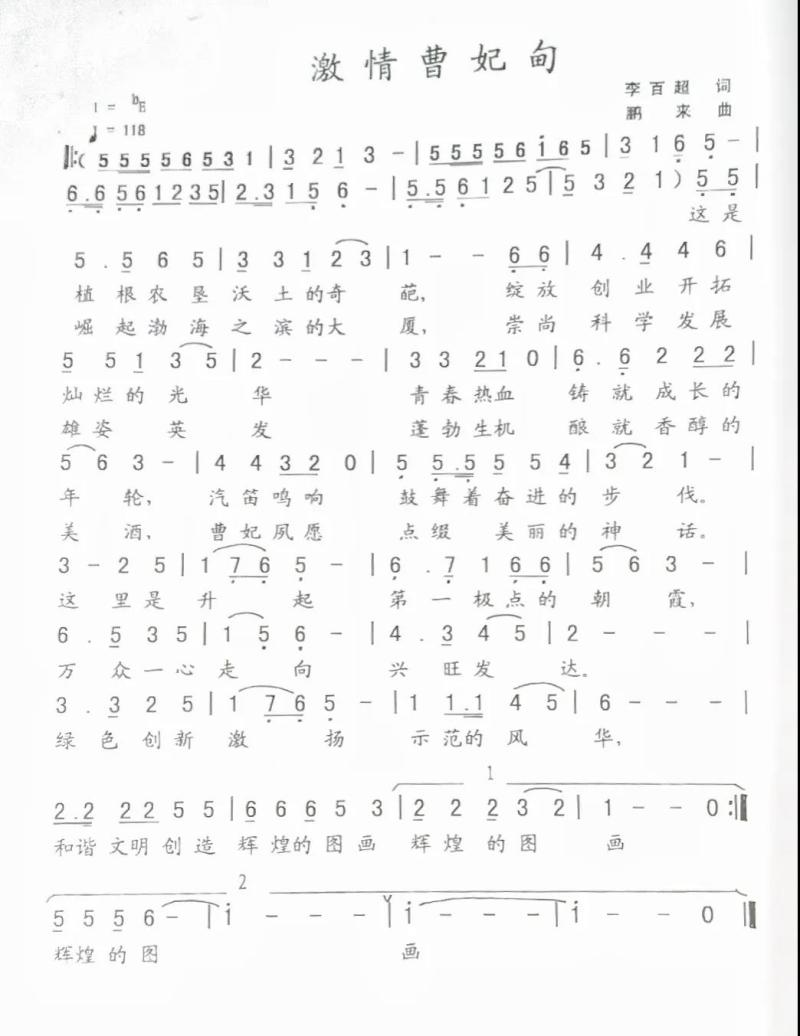 激情曹妃甸
李百超 词
1 = ♭E
鹏来 曲
♩ = 118
‖:( 5 5 5 5 5 6 5 3 1 | 3 2 1 3 - | 5 5 5 5 5 6 i 6 5 | 3 1 6 5 - |
6.6 5 6 1 2 3 5 | 2.3 1 5 6 - | 5.5 6 1 2 5 | 5 3 2 1 ) 5 5 |
这是
5 . 5 6 5 | 3 3 1 2 3 | 1 - - 6 6 | 4 . 4 4 6 |
植根农垦沃土的奇葩, 绽放创业开拓
崛起渤海之滨的大厦, 崇尚科学发展
5 5 1 3 5 | 2 - - - | 3 3 2 2 1 0 | 6 . 6 2 2 2 |
灿烂的光华 青春热血 铸就成长的
雄姿英发 蓬勃生机 酿就香醇的
5 6 3 - | 4 4 3 2 0 | 5 5 . 5 5 4 | 3 2 1 - |
年轮, 汽笛鸣响 鼓舞着奋进的步伐。
美酒, 曹妃夙愿 点缀美丽的神话。
3 - 2 5 | 1 7 6 5 - | 6 . 7 1 6 6 | 5 6 3 - |
这里是升起 第一极点的朝霞,
6 . 5 3 5 | 1 5 6 - | 4 . 3 4 5 | 2 - - - |
万众一心走向 兴旺发达。
3 . 3 2 5 | 1 7 6 5 - | 1 1.1 4 5 | 6 - - - |
绿色创新激扬 示范的风华,
1
2.2 2 2 5 5 | 6 6 6 6 5 3 | 2 2 2 3 2 | 1 - - 0 :‖
和谐文明创造 辉煌的图画 辉煌的图画
2
5 5 5 6 - | i - - - | i - - - | i - - 0 ‖
辉煌的图 画